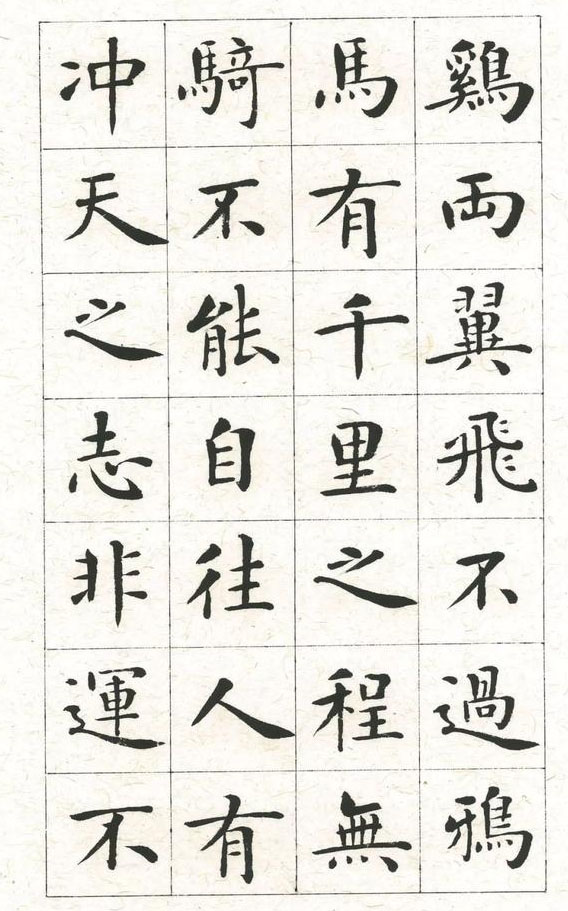 鷄両翼飛不過鴉
馬有千里之程無
騎不能自往人有
冲天之志非運不